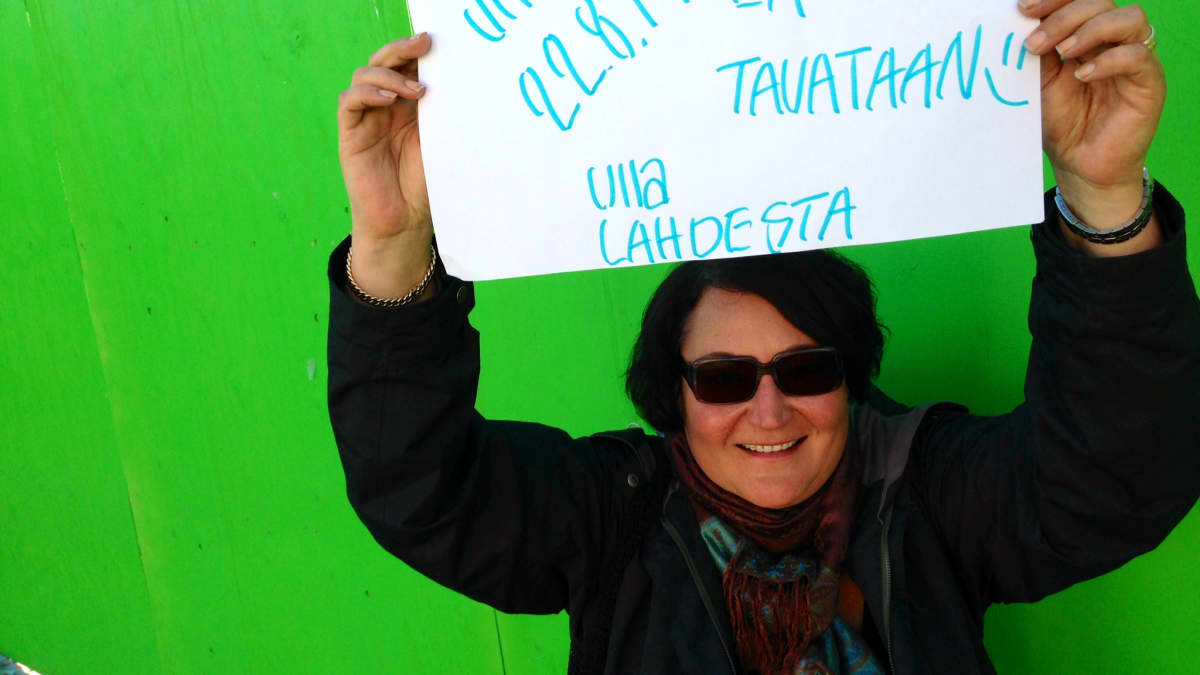 22.8.
TAVATAAN
Ulla
LAHDESTA